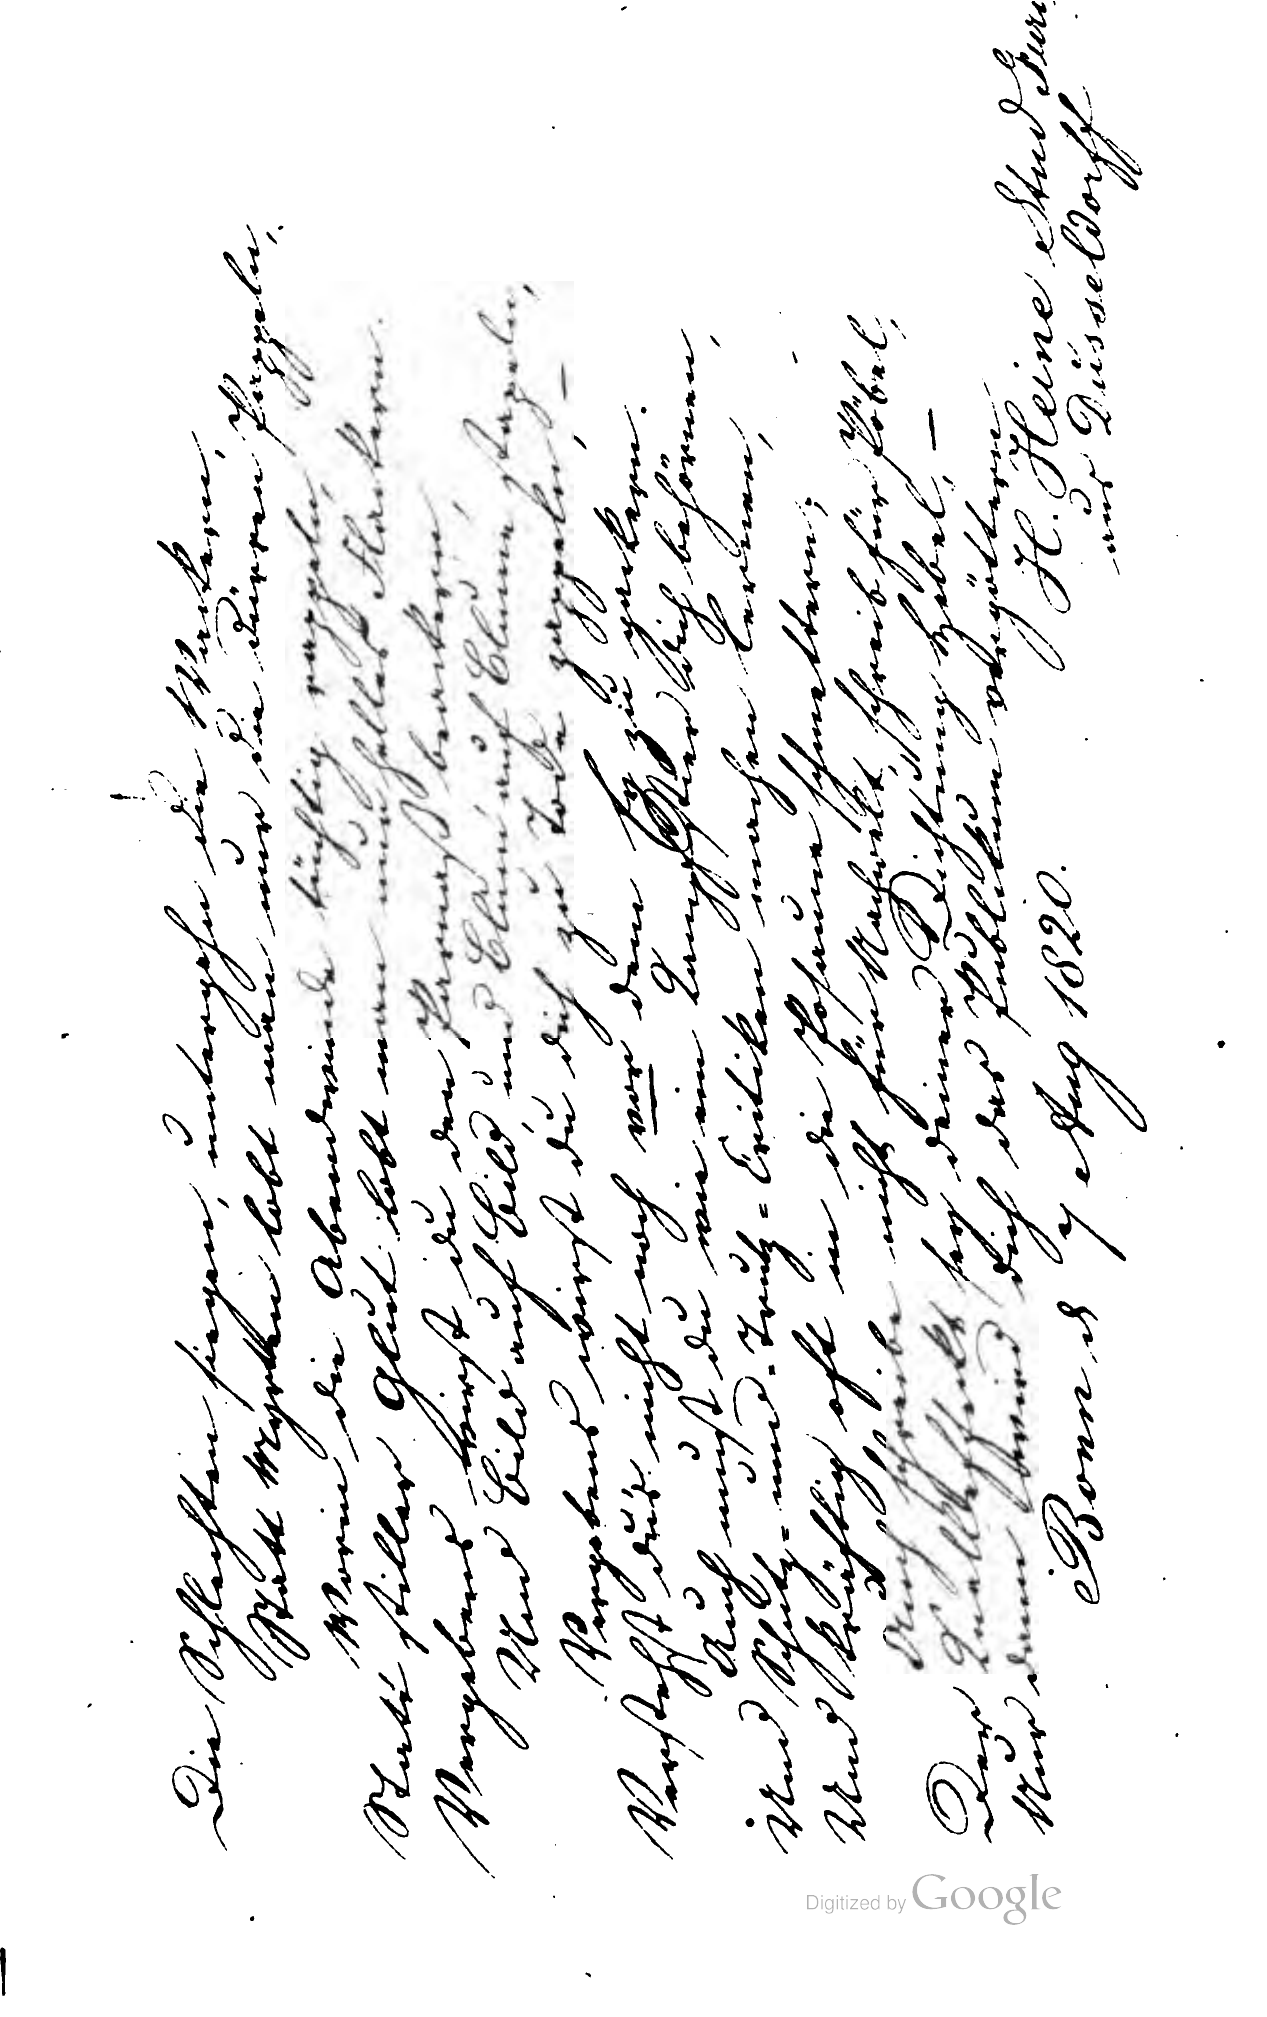 Die Schlechten siegen, untergehn die Wackern,
Statt Myrthen lobt man nur die dürren Pappeln,
Worin die Abendwinde tüchtig rappeln,
Statt stiller Glut lobt man nur helles Flackern.
Vergebens wirst du den Parnaß beackern,
Und Bild auf Bild, und Blum' auf Blume stapeln,
Vergebens wirst du dich zu Tode zappeln, —
Verstehst du's nicht noch vor dem Ey zu gackern.
Auch mußt du wie ein Kampfstier dich behörnen,
Und Schutz- und -Trutz-Critiken machen lernen,
Und kräftig oft in die Posaune schmettern;
Auch schreibe nicht für Nachwelt, schreib für Pöbel,
Der Knalleffekt sey deiner Dichtung Hebel, —
Nur dann wird dich das Publikum vergöttern.
Bonn d 7 Aug 1820.
H. Heine Stud Juri
aus Düsseldorff
Digitized by Google